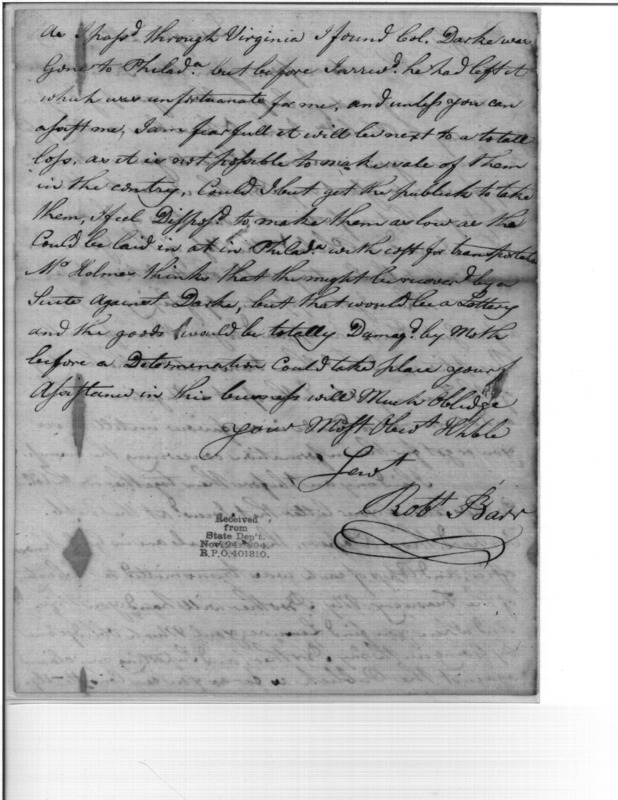 As I pass'd through Virginia I found Col. Darke was
Gone to Philad.a but before I arriv'd he had left it
which was unfortunate for me, and unless you can
assist me, I am fearfull it will be next to a totall
loss, as it is not possible to make sale of them
in the contry, Could I but get the publick to take
them, I feel Dispos'd to make them as low as the
Could be laid in at in Philad.a with cost for transportati
Mr. Holmes thinks that the might be recover'd by a
Suite against Darke, but that would be a Lottery
and the goods would be totally Damag'd by Moth
before a Determination Could take place your
Assistance in this business will Much Oblidge
your Most Obed.t H'ble
Serv.t
Rob.t Barr
Received
from
State Dep't.
Nov. 24 1904.
R.P.O. 401810.